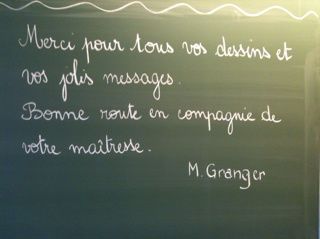 Merci pour tous vos dessins et
vos jolis messages.
Bonne route en compagnie de
votre maîtresse.
M. Granger